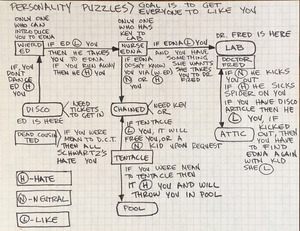 PERSONALITY PUZZLES> GOAL IS TO GET
EVERYONE TO LIKE YOU
ONLY ONE
WHO CAN
INTRODUCE
YOU TO EDNA
WEIRD
ED
IF ED Ⓛ YOU
THEN HE TAKES
YOU TO EDNA
IF YOU RUN AWAY
THEN HE Ⓗ YOU
IF YOU
DON'T
DANCE
ED Ⓗ YOU
ONLY ONE
WHO HAS
KEY TO
LAB
NURSE
EDNA
IF EDNA Ⓛ YOU
AND YOU HAVE
SOMETHING
SHE WANTS
SHE TAKES
YOU TO DR
FRED
IF EDNA
DOESN'T KNOW
YOU
DR. FRED IS HERE
LAB
DOCTOR
FRED
IF Ⓝ HE KICKS
YOU OUT
IF Ⓗ HE SICKS
SPIDER ON YOU
IF YOU HAVE DISCO
ARTICLE THEN HE
Ⓛ YOU, IF
KICKED OUT,
THEN YOU
HAVE TO FIND
EDNA AGAIN
WITH KID
SHE Ⓛ
ATTIC
DISCO
NEED
TICKETS
TO GET IN
ED IS HERE
CHAINED
NEED KEY
OR
DEAD COUSIN
TED
IF YOU WERE
MEAN TO D.C.T.
THEN ALL
SCHWARTZ'S
HATE YOU
IF TENTACLE
Ⓛ YOU, IT WILL
FREE YOU OR A
Ⓝ KID UPON REQUEST
TENTACLE
IF YOU WERE MEAN
TO TENTACLE THEN
IT Ⓗ YOU AND WILL
THROW YOU IN POOL
POOL
Ⓗ-HATE
Ⓝ-NEUTRAL
Ⓛ-LIKE